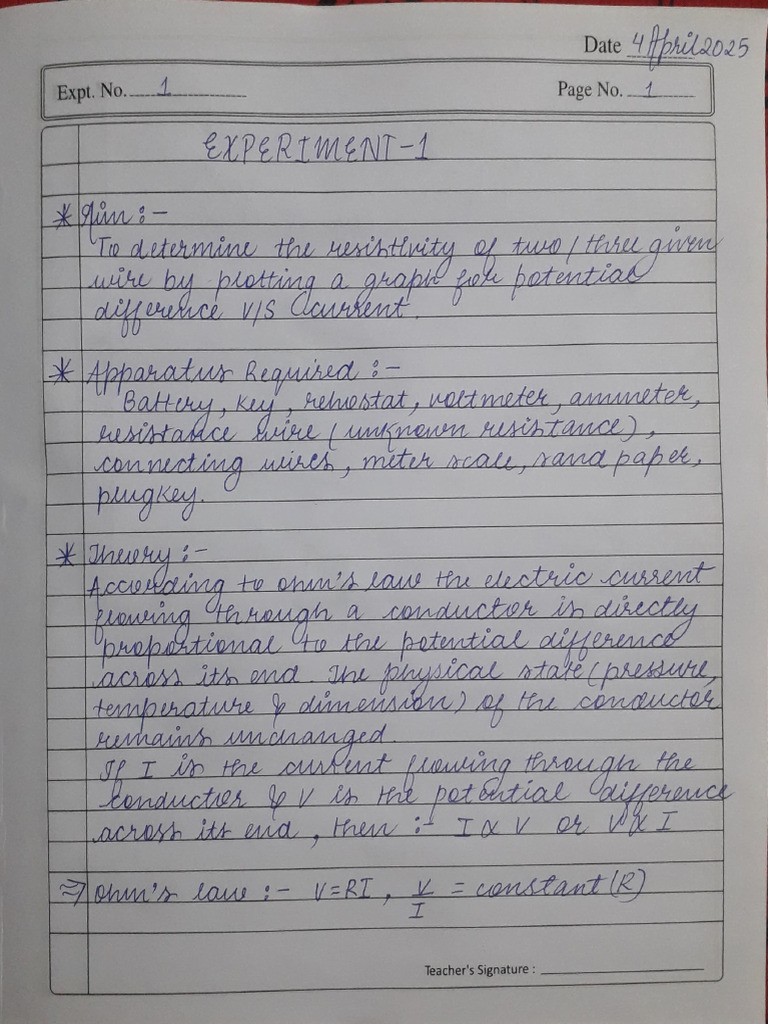 Date 4 April 2025
Expt. No. 1 Page No. 1
EXPERIMENT-1
* Aim :-
To determine the resistivity of two / three given
wire by plotting a graph for potential
difference V/S Current.
* Apparatus Required :-
Battery, key, rehostat, voltmeter, ammeter,
resistance wire (unknown resistance),
connecting wires, meter scale, sand paper,
plugkey.
* Theory :-
According to ohm's law the electric current
flowing through a conductor is directly
proportional to the potential difference
across its end. The physical state (pressure,
temperature & dimension) of the conductor
remains unchanged.
If I is the current flowing through the
conductor & V is the potential difference
across its end, then :- I ∝ V or V ∝ I
⇒ Ohm's law :- V=RI, V/I = constant (R)
Teacher's Signature :